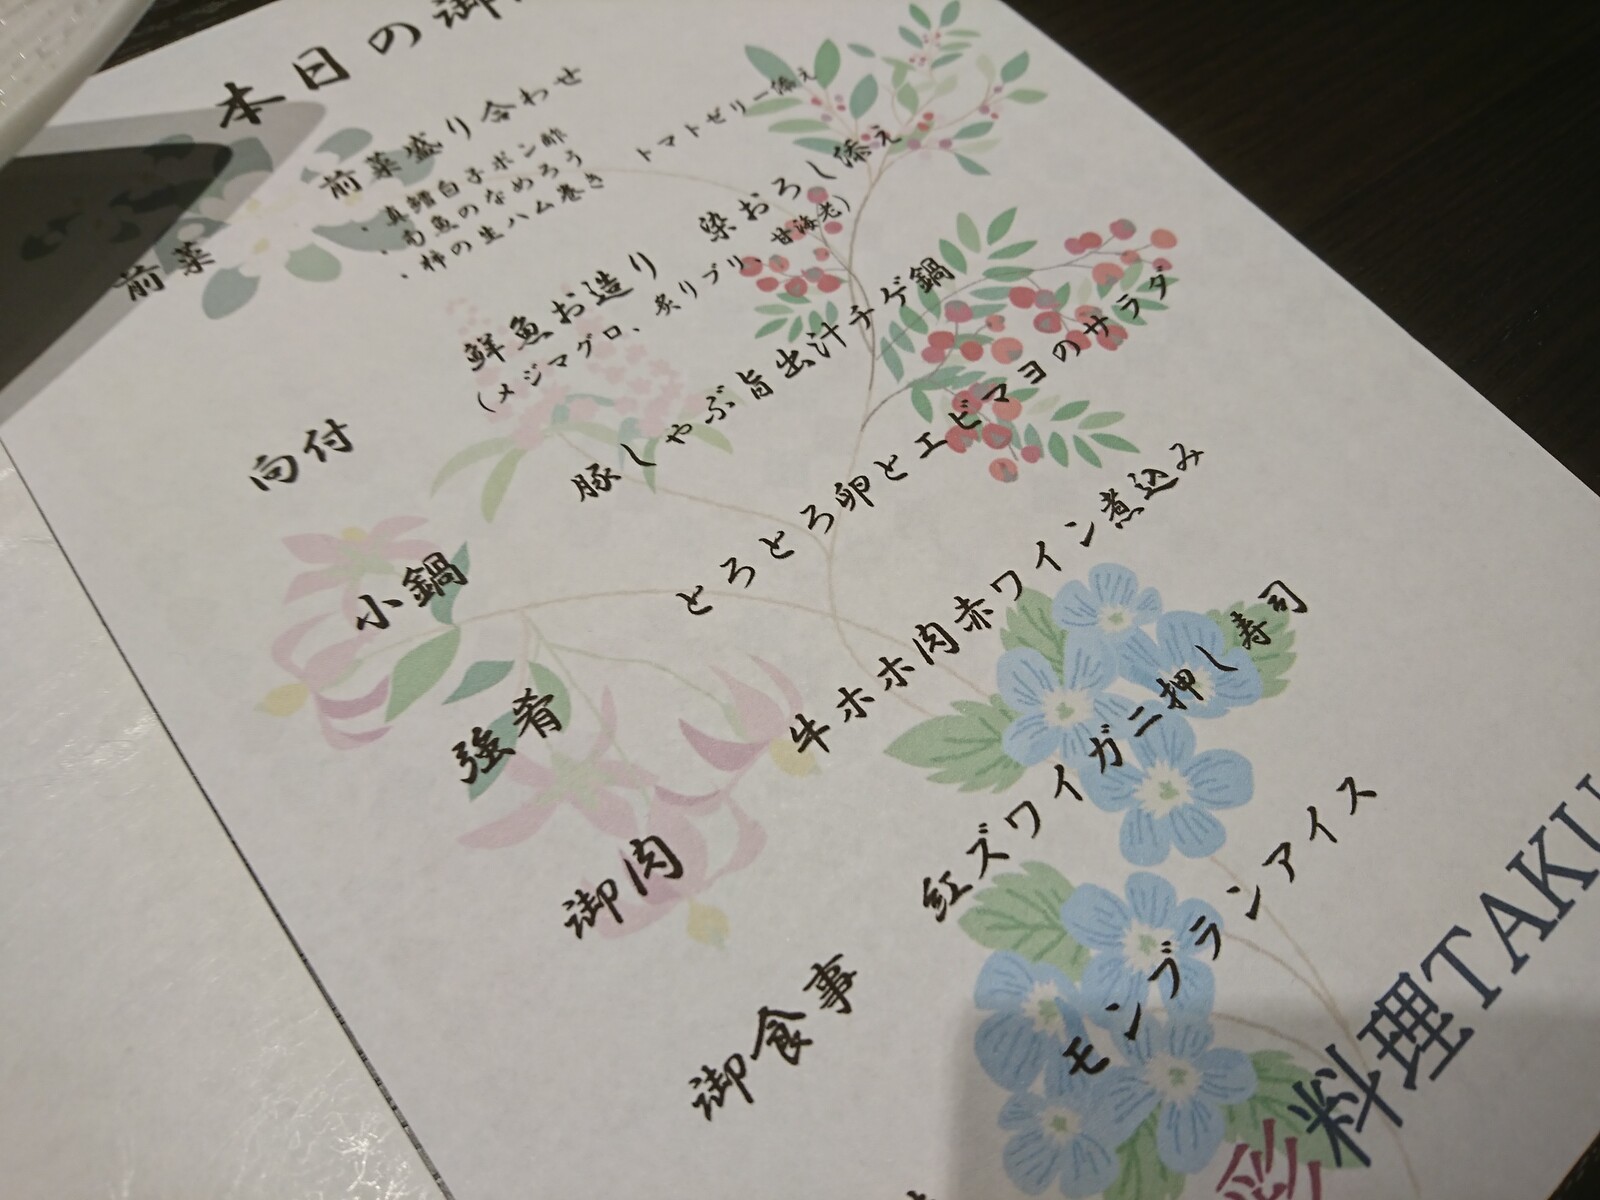 本日の御
前菜 前菜盛り合わせ
・真鱈白子ポン酢
・旬魚のなめろう トマトゼリー添え
・柿の生ハム巻き
向付 鮮魚お造り 染おろし添え
(メジマグロ、炙りブリ、甘海老)
小鍋 豚しゃぶ旨出汁チゲ鍋
強肴 とろとろ卵とエビマヨのサラダ
御肉 牛ホホ肉赤ワイン煮込み
御食事 紅ズワイガニ押し寿司
モンブランアイス
彩 料理TAKU